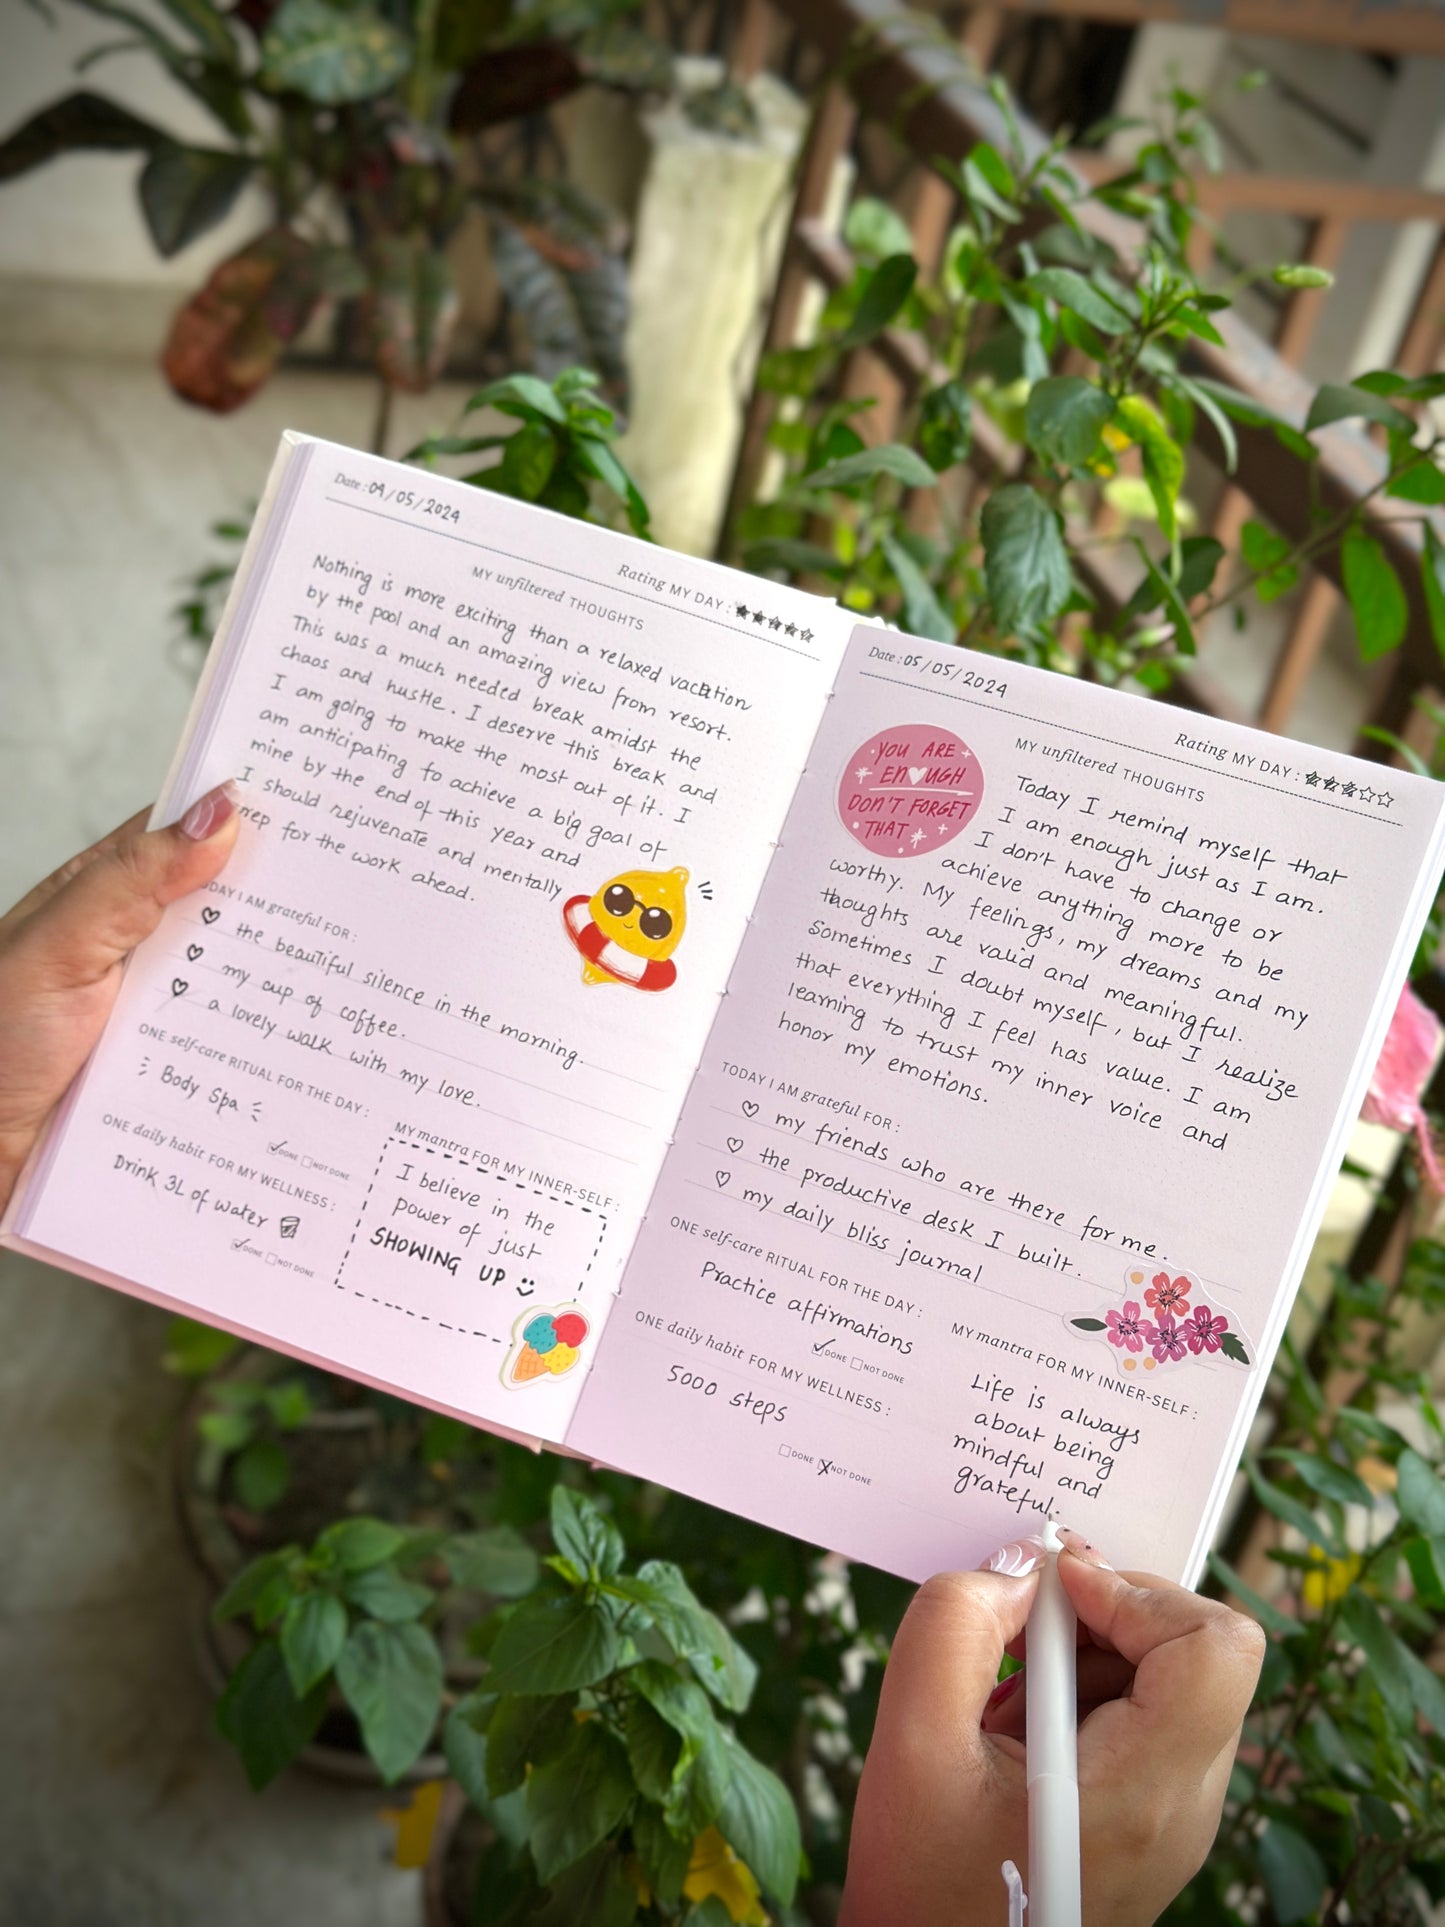 Date : 04/05/2024
Rating MY DAY :
MY unfiltered THOUGHTS
Nothing is more exciting than a relaxed vacation
by the pool and an amazing view from resort.
This was a much needed break amidst the
chaos and hustle. I deserve this break and
I am going to make the most out of it. I
am anticipating to achieve a big goal of
mine by the end of this year and
I should rejuvenate and mentally
prep for the work ahead.
TODAY I AM grateful FOR :
the beautiful silence in the morning.
my cup of coffee.
a lovely walk with my love.
ONE self-care RITUAL FOR THE DAY :
Body Spa
DONE NOT DONE
ONE daily habit FOR MY WELLNESS :
Drink 3L of water
DONE NOT DONE
MY mantra FOR MY INNER-SELF :
I believe in the
power of just
SHOWING UP
Date : 05/05/2024
Rating MY DAY :
MY unfiltered THOUGHTS
YOU ARE
ENOUGH
DON'T FORGET
THAT
Today I remind myself that
I am enough just as I am.
I don't have to change or
achieve anything more to be
worthy. My feelings, my dreams and my
thoughts are valid and meaningful.
Sometimes I doubt myself, but I realize
that everything I feel has value. I am
learning to trust my inner voice and
honor my emotions.
TODAY I AM grateful FOR :
my friends who are there for me.
the productive desk I built.
my daily bliss journal
ONE self-care RITUAL FOR THE DAY :
Practice affirmations
DONE NOT DONE
ONE daily habit FOR MY WELLNESS :
5000 steps
DONE NOT DONE
MY mantra FOR MY INNER-SELF :
Life is always
about being
mindful and
grateful.